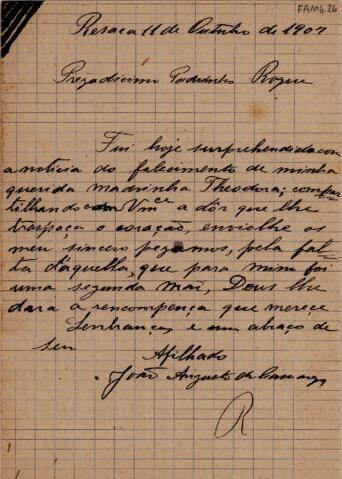 FAMG.26
Resaca 11 de Outubro de 1907
Prezadicimo Padrinho Roque
Fui hoje surprehendida com
a noticia do falecimento de minha
querida madrinha Theodora; compar
tilhando com Vmce a dôr que lhe
traspaça o coração, enviolhe os
meu sincero pezamos, pela fal-
ta d'aquella, que para mim foi
uma segunda mai, Deus lhe
dara a rencompença que mereçe
Lenbranças e um abraço de
seu
Afilhado
João Augusto de Camargo
R